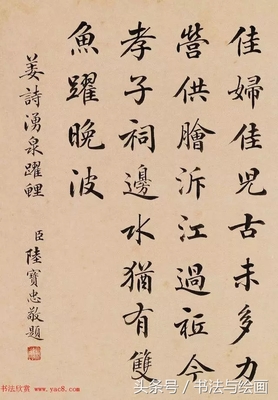 佳婦佳兒古未多力
營供膾泝江過祗今
孝子祠邊水猶有雙
魚躍晚波
姜詩湧泉躍鯉
臣陸寶忠敬題
书法欣赏 www.yac8.com
头条号 / 书法与绘画